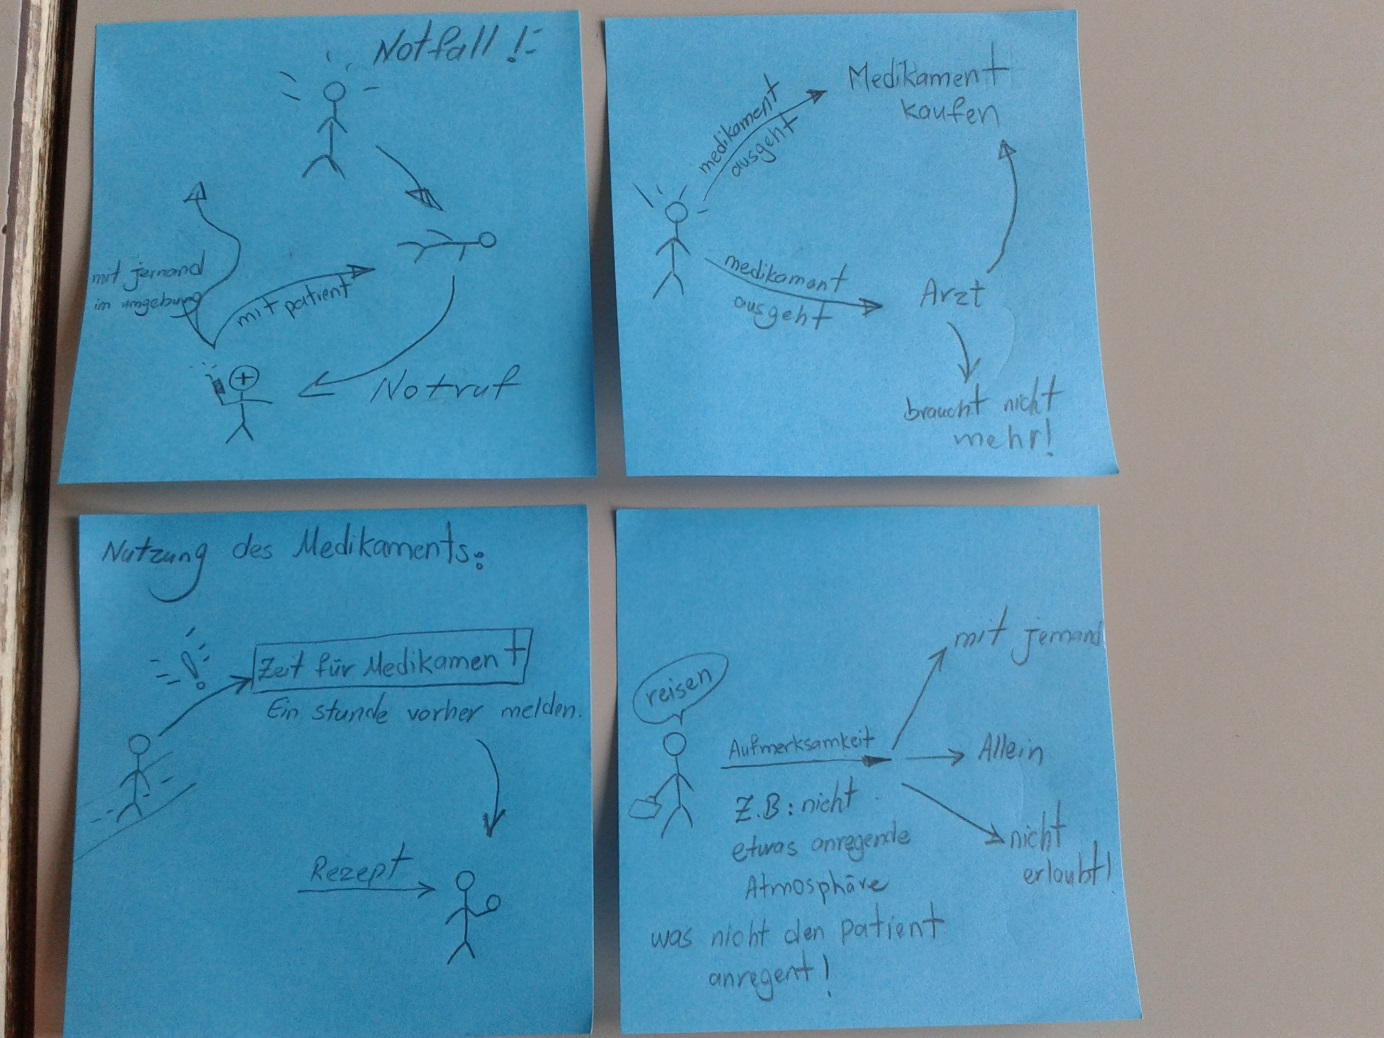 Notfall !
mit jemand
in umgebung
mit patient
Notruf
medikament
ausgeht
Medikament
kaufen
medikament
ausgeht
Arzt
braucht nicht
mehr!
Nutzung des Medikaments:
!
Zeit für Medikament
Ein stunde vorher melden.
Rezept
reisen
Aufmerksamkeit
Z.B: nicht
etwas anregende
Atmosphäre
was nicht den patient
anregent!
mit jemand
Allein
nicht
erlaubt!